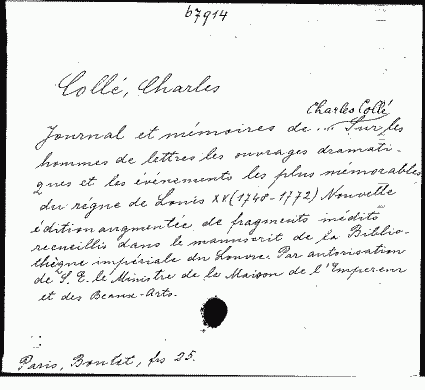 67914
Collé, Charles
Charles Collé
Journal et mémoires de ... Sur les
hommes de lettres les ouvrages dramati-
ques et les événements les plus mémorables
du règne de Louis XV (1748-1772) Nouvelle
édition augmentée de fragments inédits
recueillis dans le manuscrit de la Biblio-
thèque impériale du Louvre. Par autorisation
de S. E. le Ministre de la Maison de l'Empereur
et des Beaux-Arts.
Paris, frs 25.